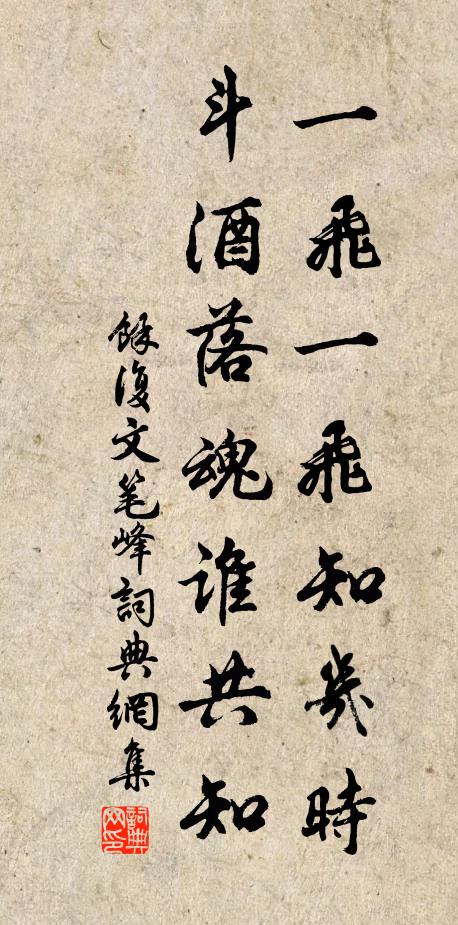 一飛一飛知幾時
斗酒落魂誰共知
餘復文笔峰詞典網集
詞典网印